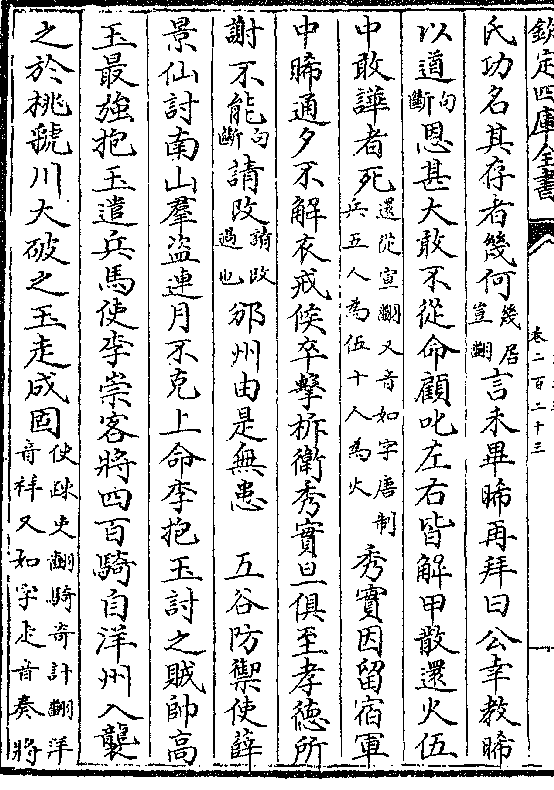 欽定四庫全書
卷二百二十三
氏功名其存者幾何幾居豈翻言未畢晞再拜曰公幸教晞
以道句斷恩甚大敢不從命顧叱左右皆解甲散還火伍
中敢譁者死還從宣翻又音如字唐制兵五人為伍十人為火秀實因留宿軍
中晞通夕不解衣戒候卒擊柝衛秀實旦俱至孝德所
謝不能句斷請改請改過也邠州由是無患　五谷防禦使薛
景仙討南山羣盜連月不克上命李抱玉討之賊帥高
玉最強抱玉遣兵馬使李崇客將四百騎自洋州入襲
之於桃虢川大破之玉走成固使疏吏翻騎奇計翻洋音祥又如字走音奏將